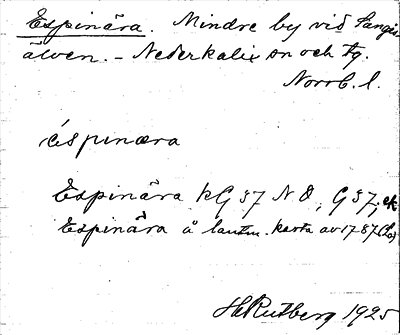 Espinära. Mindre by vid Sangis
älven. – Nederkalix sn och tg.
Norrb. l.
éspinæra
Espinära kG 37 NO, G37, ek
Espinära å lantm. karta av 1787 (Lo)
HRutberg 1925